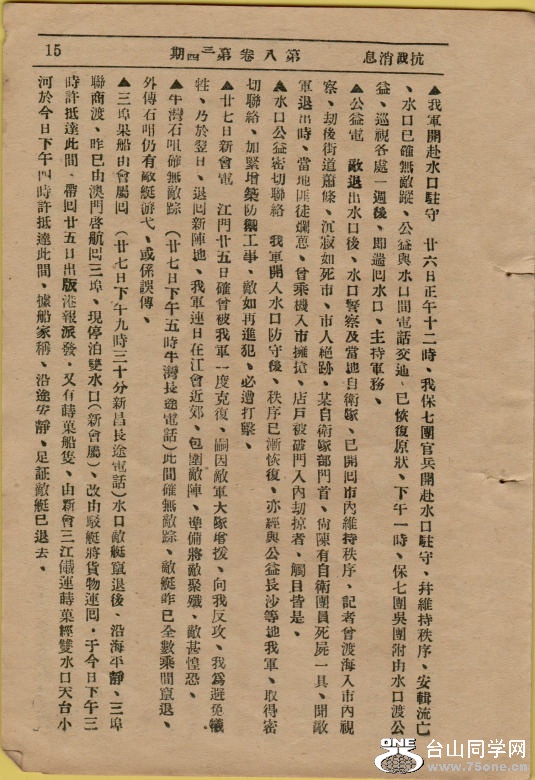 抗战消息　第八卷第三四期　15
▲我軍開赴水口駐守　廿六日正午十二時、我保七團官兵開赴水口駐守、幷維持秩序、安輯流亡
、水口已確無敵蹤、公益與水口間電話交通、已恢復原狀、下午一時、保七團吳團附由水口渡公
益、巡視各處一週後、即遄囘水口、主持軍務、
▲公益電　敵退出水口後、水口警察及當地自衛隊、已開囘市內維持秩序、記者曾渡海入市內視
察、劫後街道蕭條、沉寂如死市、市人絕跡、某自衛隊部門首、尙陳有自衛團員死屍一具、聞敵
軍退出時、當地匪徒爛惡、曾乘機入市擄搶、店戶被破門入內劫掠者、觸目皆是、
▲水口公益密切聯絡　我軍開入水口防守後、秩序已漸恢復、亦經與公益長沙等地我軍、取得密
切聯絡、加緊增築防禦工事、敵如再進犯、必遭打擊、
▲廿七日新會電　江門廿五日確曾被我軍一度克復、嗣因敵軍大隊增援、向我反攻、我爲避免犧
牲、乃於翌日、退囘新陣地、我軍連日在江會近郊、包圍敵陣、準備將敵聚殲、敵甚惶恐、
▲牛灣石咀確無敵踪　（廿七日下午五時牛灣長途電話）此間確無敵踪、敵艇昨已全數乘間竄退、
外傳石咀仍有敵艇游弋、或係誤傳、
▲三埠果船由會屬囘　（廿七日下午九時三十分新昌長途電話）水口敵艇竄退後、沿海平靜、三埠
聯商渡、昨巳由澳門啓航囘三埠、現停泊雙水口（新會屬）、改由駁艇將貨物運囘、于今日下午三
時許抵達此間、帶囘廿五日出版港報派發、又有蒔菓船隻、由新會三江儎運蒔菓經雙水口天台小
河於今日下午四時許抵達此間、據船家稱、沿途安靜、足証敵艇已退去、
ONE
台山同学网
www.75one.cn